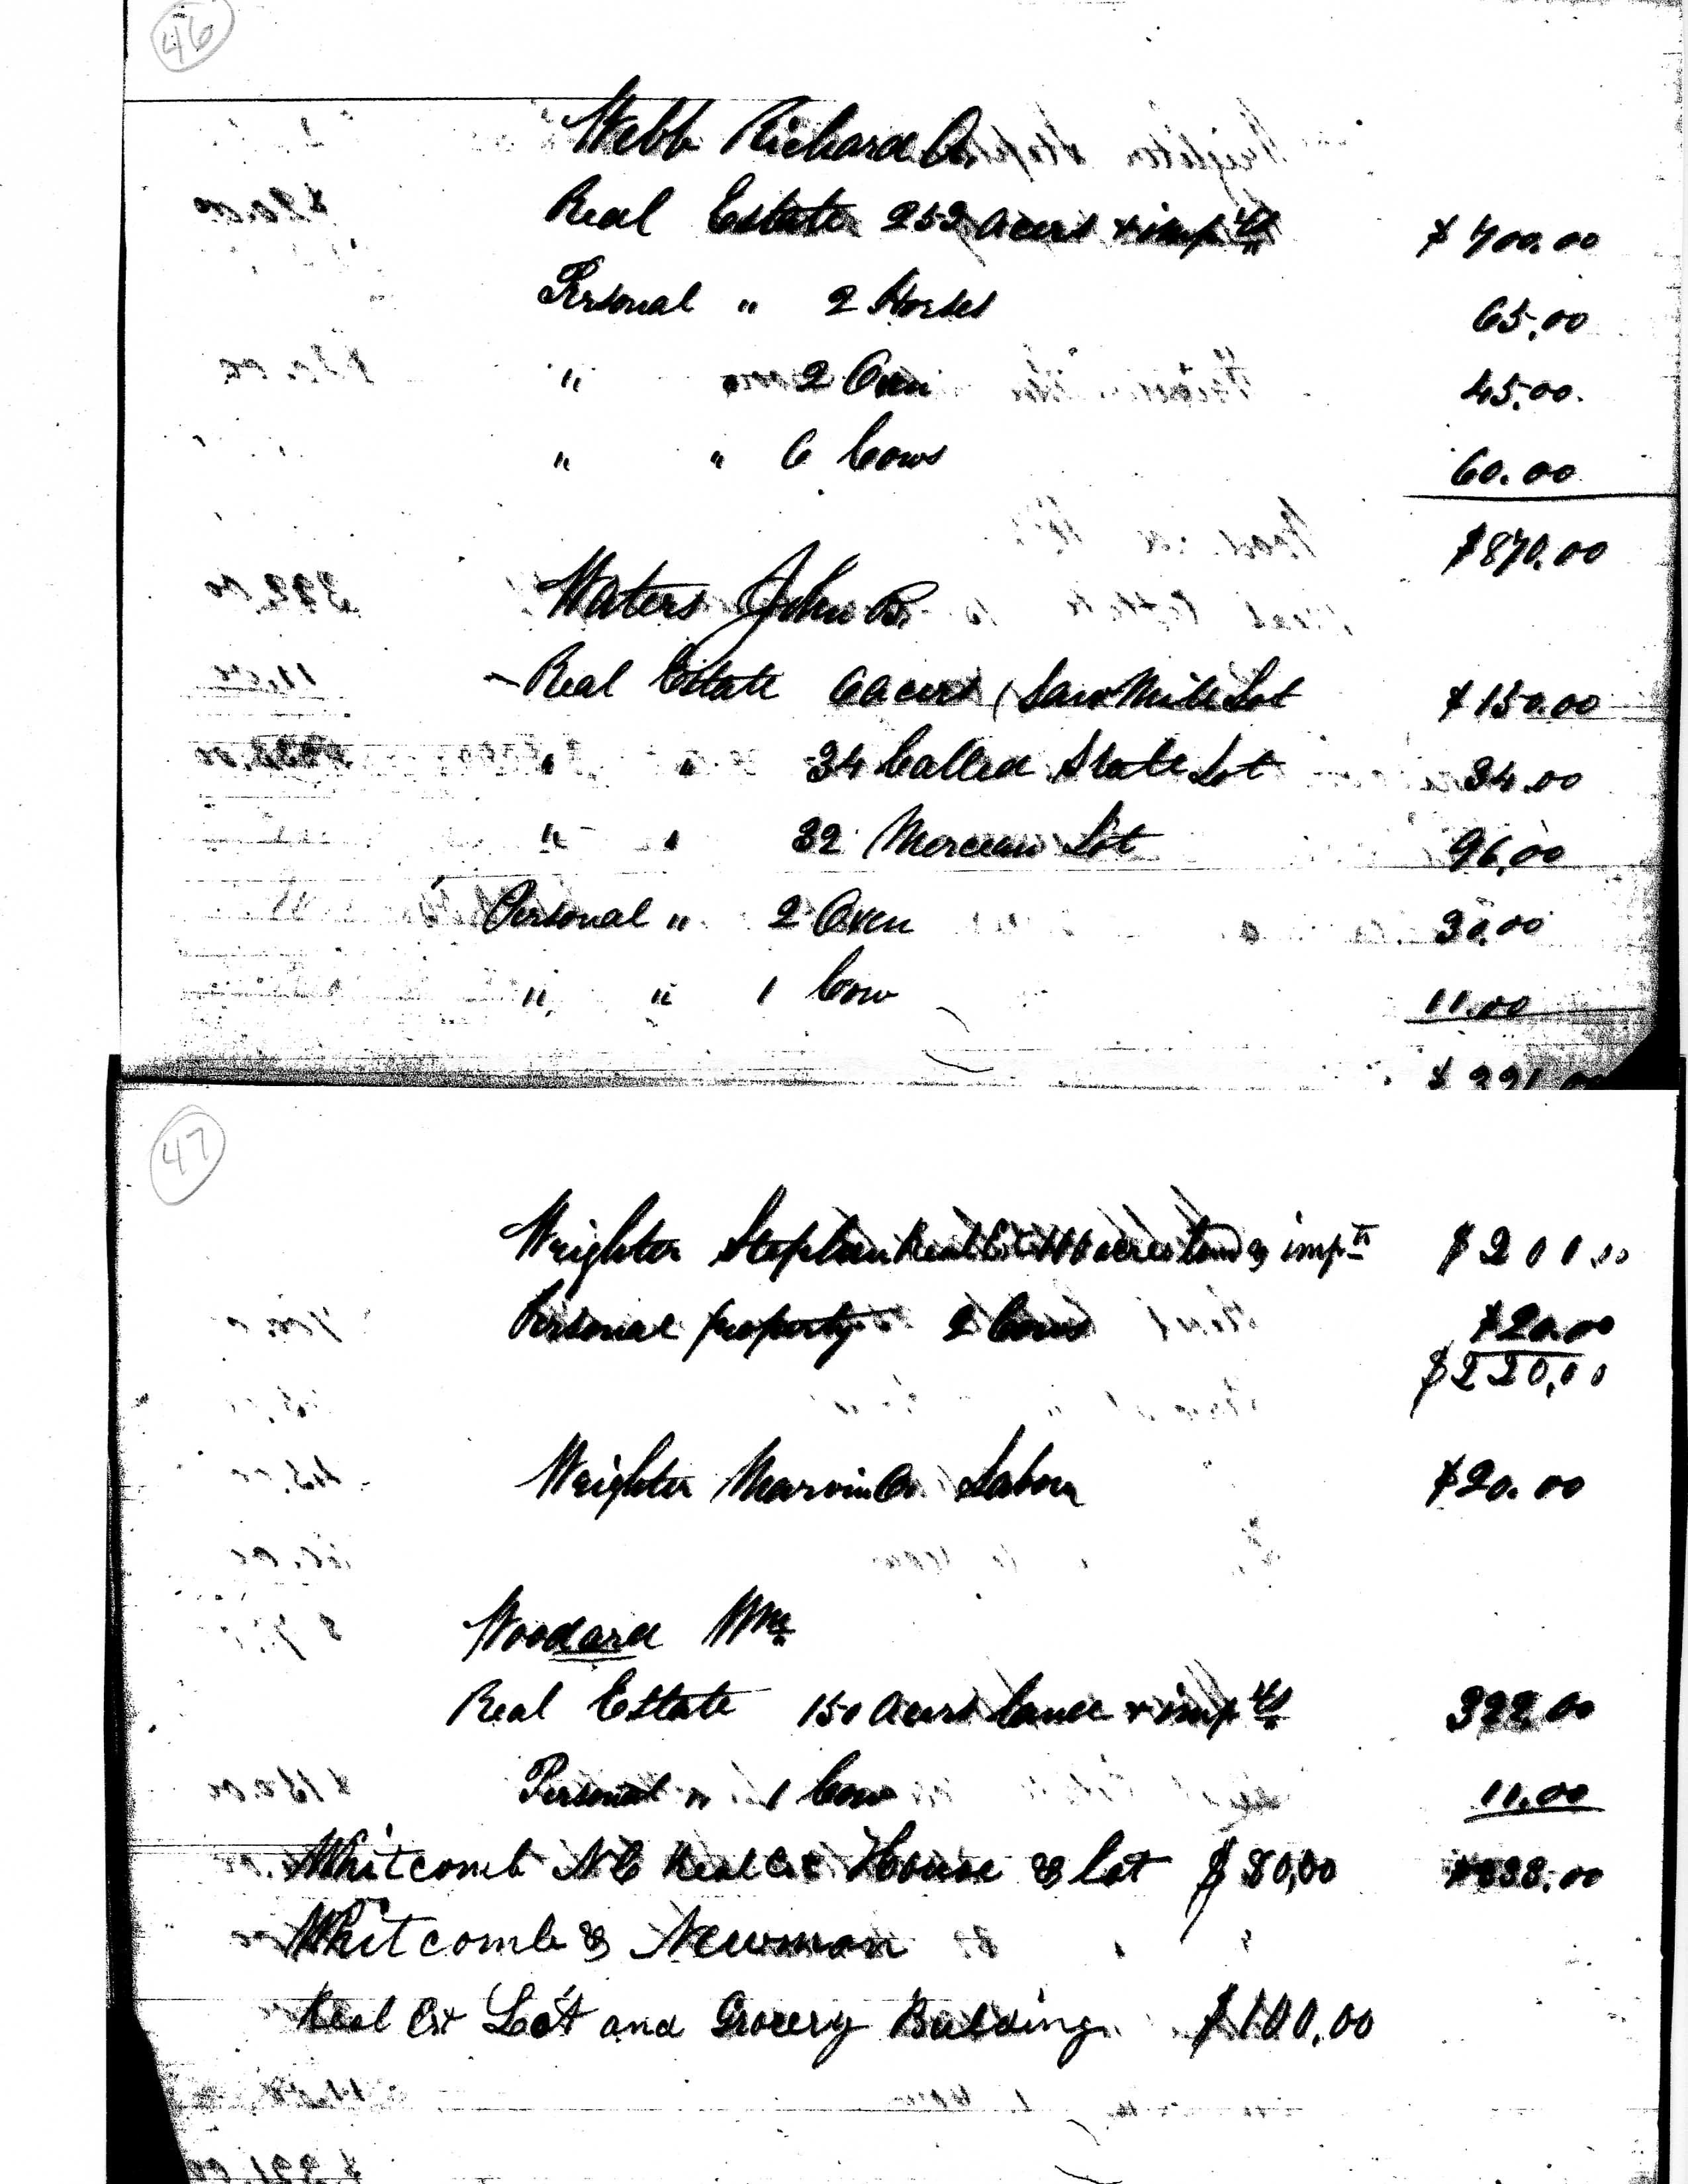 46
Webb Richard A.
Real Estate 252 acers & imp ts $700.00
Personal " 2 Horses 65.00
" " 2 Oxen 45.00.
" " 6 Cows 60.00
$870.00
Waters John B.
Real Estate 6 acers (Saw Mill Lot $150.00
" " 34 Called State Lot 34.00
" " 32 Lot 96.00
Personal " 2 Oxen 30.00
" " 1 Cow 11.00
$321.00
47
Wrighter Stephen Real Est 100 acres land & imp ts $200.00
Personal property 2 Cows $20.00
$220.00
Wrighter Marvin Labour $20.00
Woodard Wm
Real Estate 150 acers land & imp ts 322.00
Personal " 1 Cow 11.00
Whitcomb N C Real Est House & lot $80,00 $333.00
Whitcomb & Newman
Real Est Lot and Grocery Building $100.00